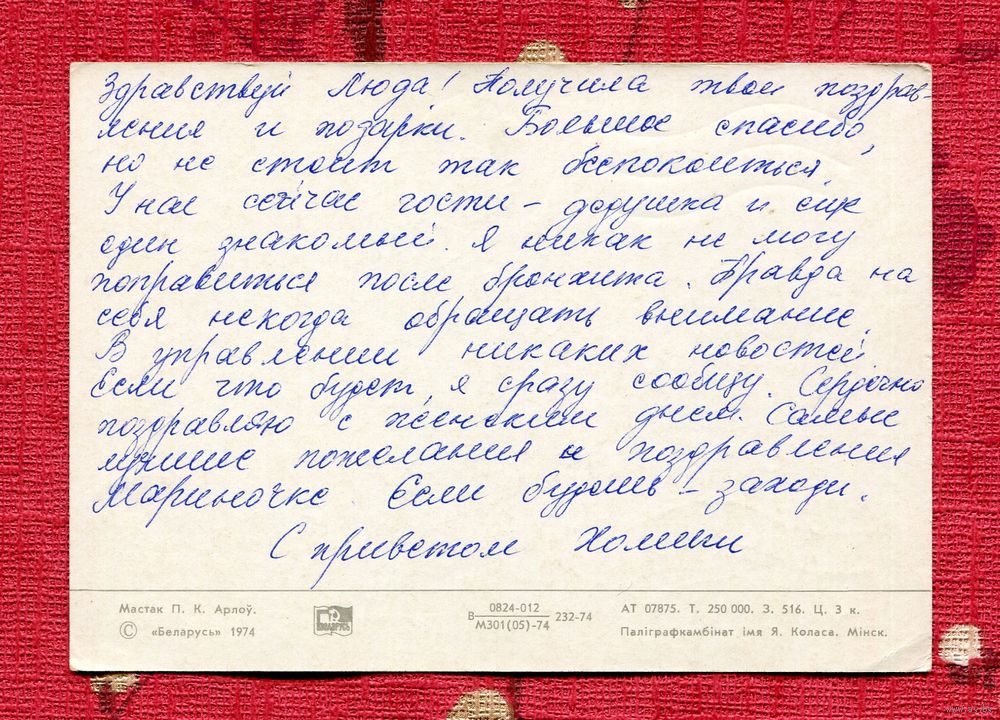 Здравствуй Люда! Получила твои поздрав-
ления и подарки. Большое спасибо,
но не стоит так беспокоиться.
У нас сейчас гости – дедушка и еще
один знакомый. Я никак не могу
поправиться после бронхита. Правда на
себя некогда обращать внимание.
В управлении никаких новостей.
Если что будет, я сразу сообщу. Сердечно
поздравляю с женским днем. Самые
лучшие пожелания и поздравления
Мариночке. Если будешь – заходи.
С приветом
Мастак П. К. Арлоў.
© «Беларусь» 1974
БЕЛАРУСЬ
В 0824-012 / М301(05)-74 232-74
АТ 07875. Т. 250 000. З. 516. Ц. 3 к.
Паліграфкамбінат імя Я. Коласа. Мінск.